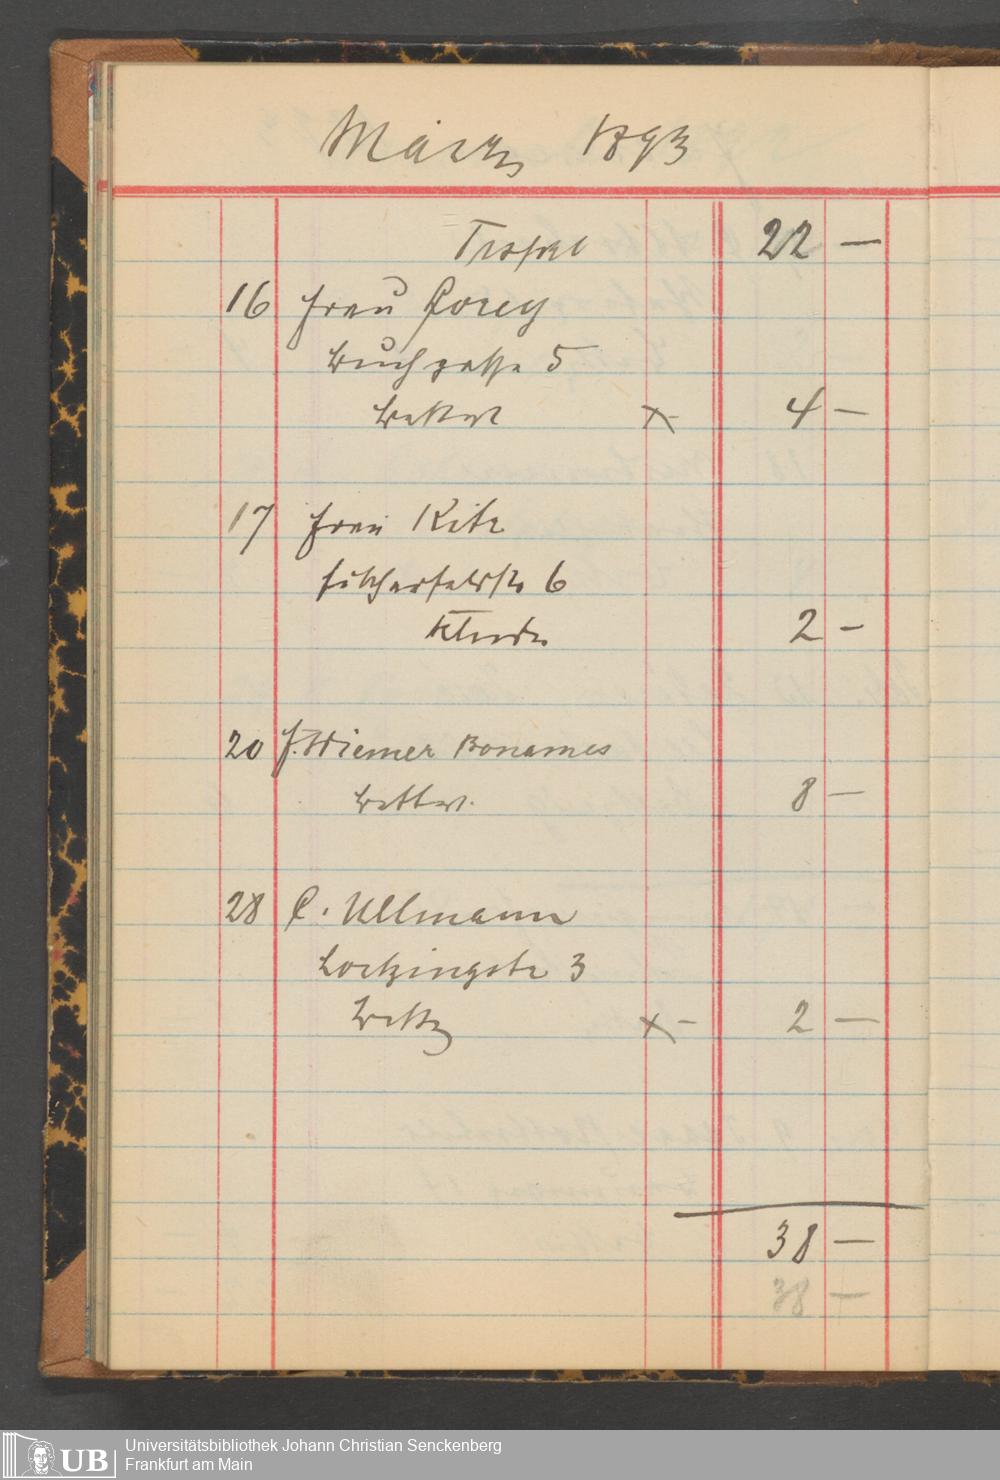 März 1893
Transport 22 —
16 Frau Corey
Buchgasse 5
Bettw x- 4 —
17 Frau Kitz
Fischerfeldstr 6
Kleider 2 —
20 J. Wiemer Bonames
Bettw. 8 —
28 C. Ullmann
Lortzingstr 3
Bettzg x- 2 —
38 —
38 —
UB
Universitätsbibliothek Johann Christian Senckenberg
Frankfurt am Main